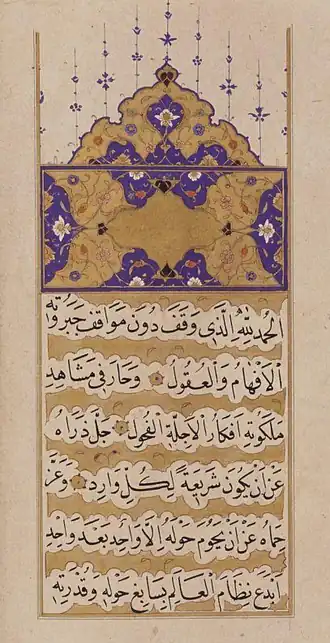 الحمد لله الذي وقف دون مواقف جبروته
الافهام والعقول وحار في مشاهد
ملكوته افكار الاجلة الفحول جل ذراه
عن ان يكون شريعة لكل وارد وعز
حماه عن ان يحوم حوله الا واحد بعد واحد
ابدع نظام العالم بسابغ حوله وقدرته